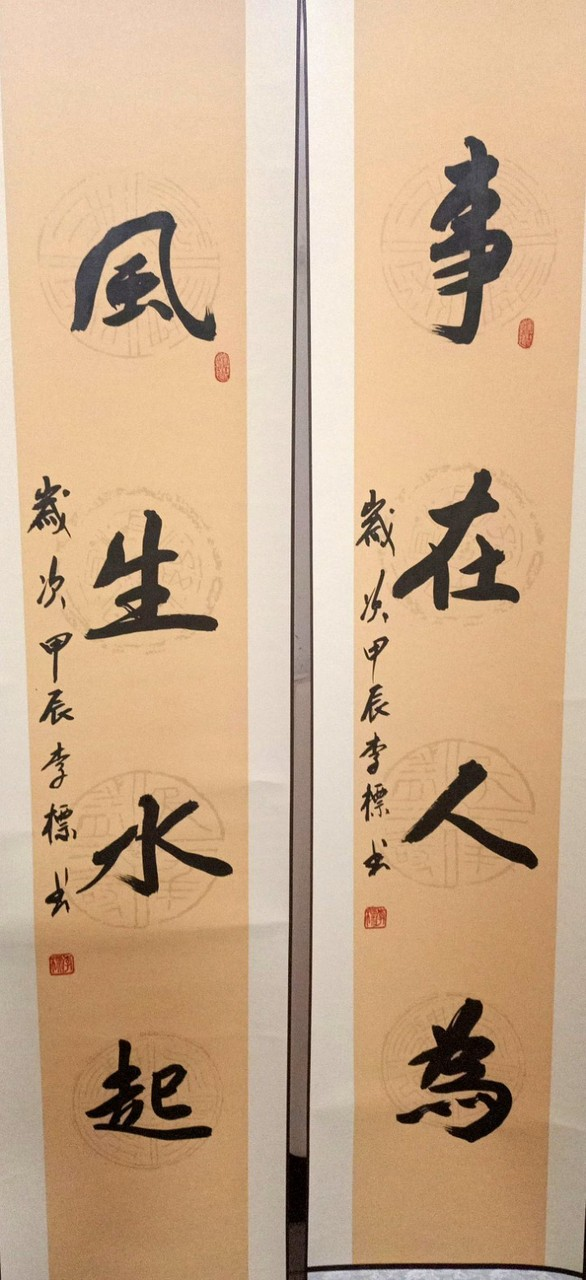 事在人為
歲次甲辰李標书
風生水起
歲次甲辰李標书